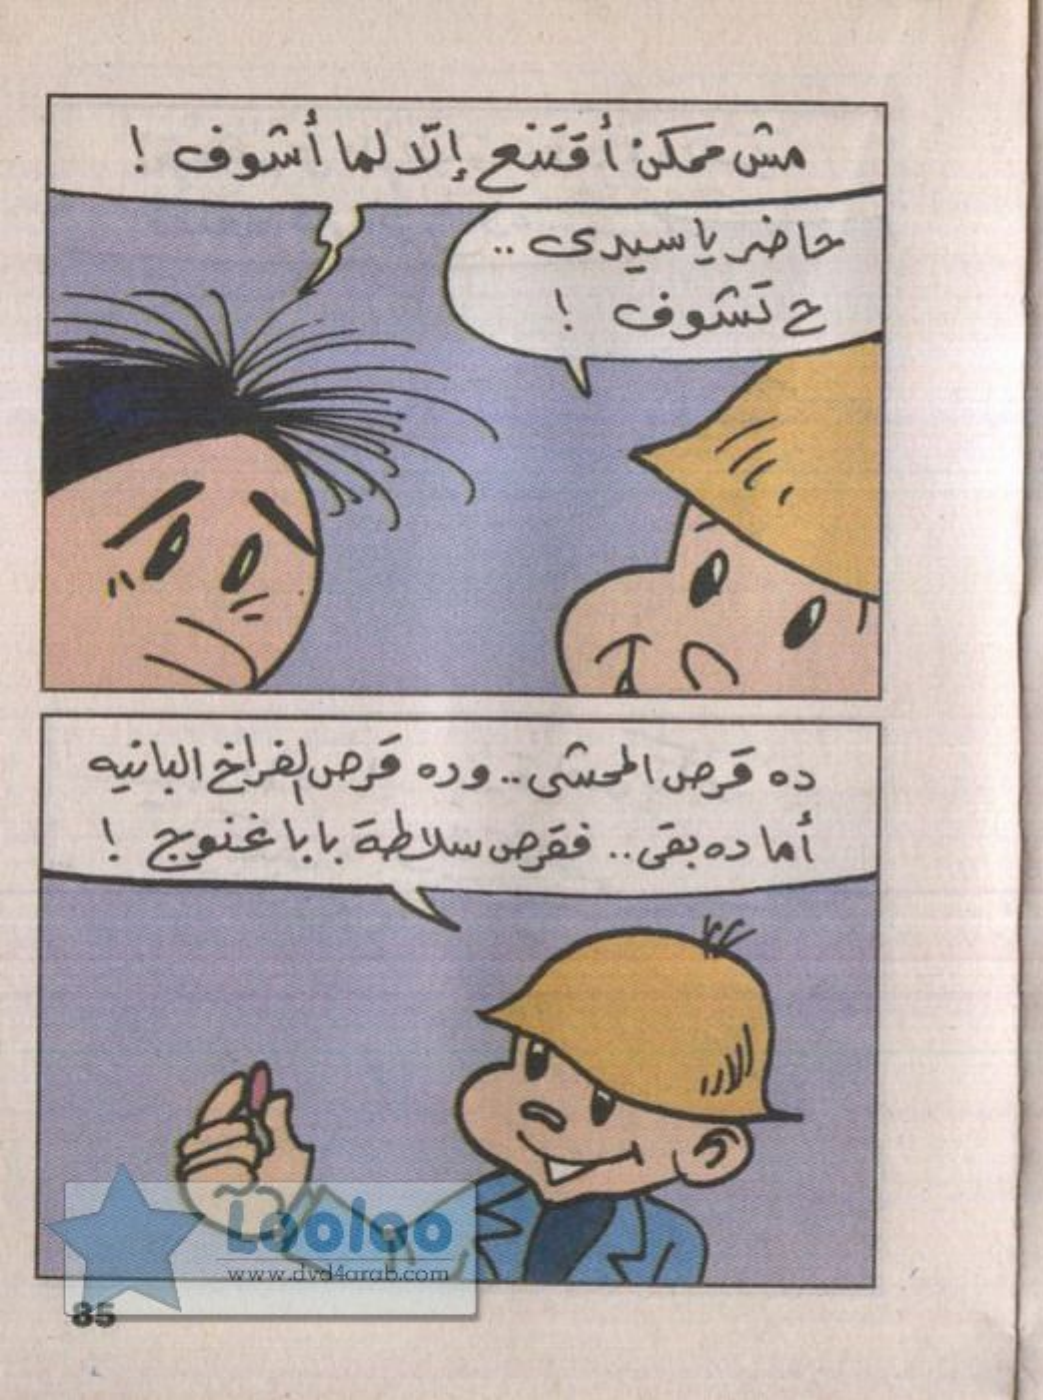 مش ممكن أقتنع إلّا لما أشوف !
حاضر يا سيدى ..
ح تشوف !
ده قرص المحشى .. وده قرص الفراخ البانيه
أما ده بقى .. فقرص سلاطة بابا غنوج !
Looloo
www.dvd4arab.com
85